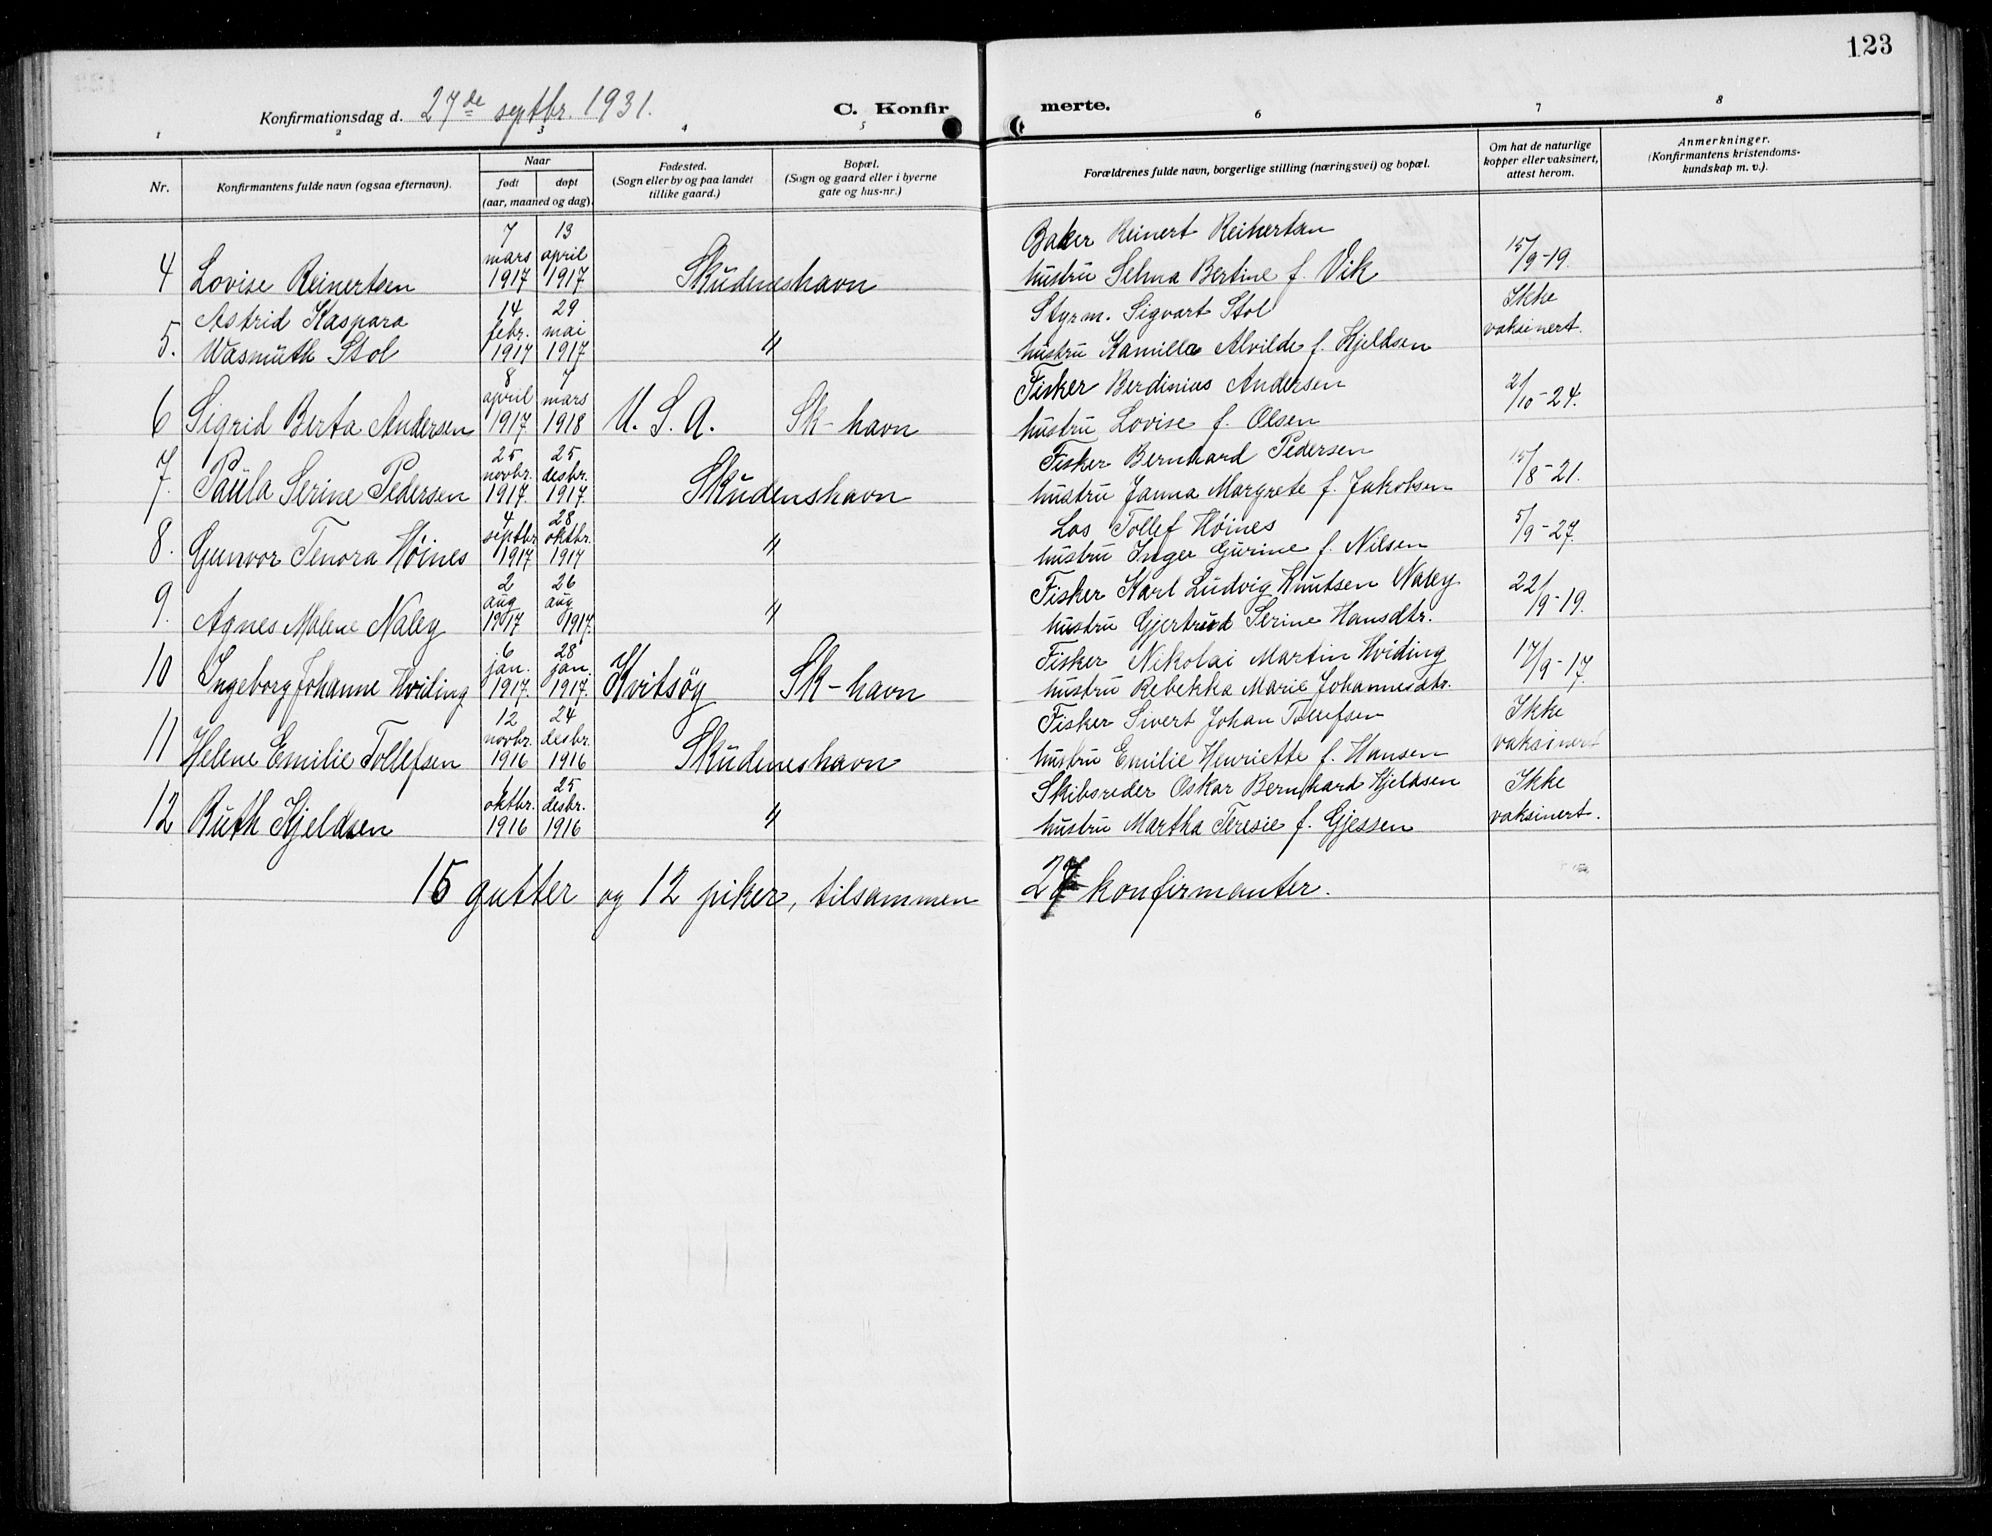 123
Konfirmationsdag d. 27de septbr. 1931.
C. Konfirmerte.
1 2 3 4 5 6 7 8
Nr.
Konfirmantens fulde navn (ogsaa efternavn).
Naar
født
døpt
(aar, maaned og dag).
Fødested.
(Sogn eller by og paa landet
tillike gaard.)
Bopæl.
(Sogn og gaard eller i byerne
gate og hus-nr.)
Forældrenes fulde navn, borgerlige stilling (næringsvei) og bopæl.
Om hat de naturlige
kopper eller vaksinert,
attest herom.
Anmerkninger.
(Konfirmantens kristendoms-
kundskap m. v.).
4 Lovise Reinertsen 7 mars 1917 13 april 1917 Skudeneshavn Baker Reinert Reinertsen
hustru Selma Bertine f. Vik 15/9-19
5. Astrid Kaspara
Wasmuth Stol 14 febr. 1917 29 mai 1917 " Styrm. Sigvart Stol
hustru Kamilla Alvilde f. Kjeldsen Ikke vaksinert.
6 Sigrid Berta Andersen 8 april 1917 7 mars 1918 U. S. A. Sk-havn Fisker Berdinius Andersen
hustru Lovise f. Olsen 2/10-24.
7. Paula Serine Pedersen 25 novbr. 1917. 25 desbr. 1917. Skudenshavn Fisker Bernhard Pedersen
hustru Janna Margrete f. Jakobsen 15/8-21.
8. Gunvor Tenora Høines 4 septbr 1917 28 oktbr. 1917 " Los Tollef Høines
hustru Inger Gurine f. Nilsen 5/9-27.
9. Agnes Malene Naley 2 aug 1917 26 aug 1917. " Fisker Karl Ludvig Knutsen Naley
hustru Gjertrud Serine Hansdtr. 22/9-19.
10 Ingeborg Johanne Hviding 6 jan. 1917. 28 jan. 1917. Kvitsøy Sk-havn Fisker Nikolai Martin Hviding
hustru Rebekka Marie Johannesdtr. 17/9-17.
11 Helene Emilie Tollefsen 12 novbr. 1916 24 desbr. 1916 Skudeneshavn Fisker Sivert Johan Tollefsen
hustru Emilie Henriette f. Hansen Ikke vaksinert
12 Ruth Kjeldsen 1 oktbr. 1916 25 desbr. 1916 " Skibsreder Oskar Bernhard Kjeldsen
hustru Martha Teresie f. Gjessen Ikke vaksinert.
15 gutter og 12 piker, tilsammen 27 konfirmanter.